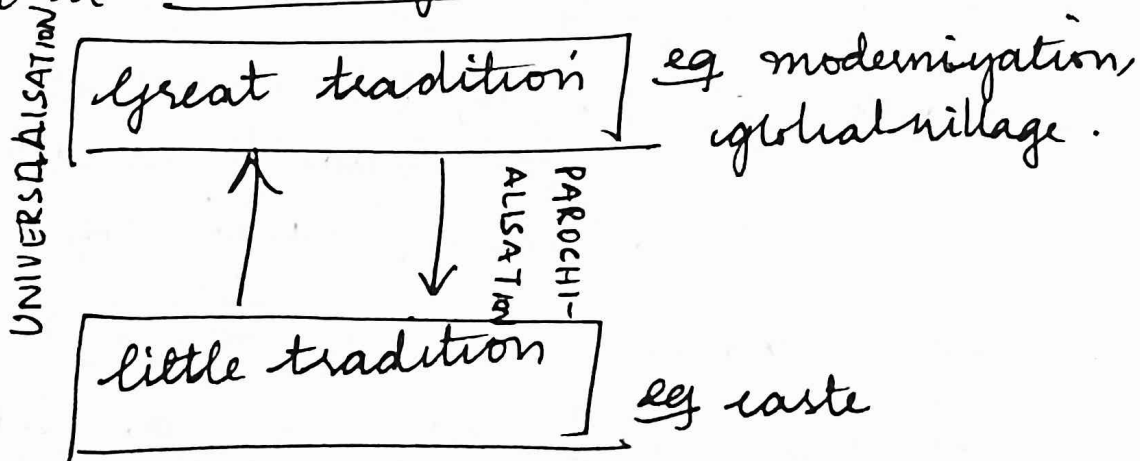 UNIVERSALISATION
Great tradition
eg modernization,
global village.
PAROCHI-
ALISATION
little tradition
eg caste